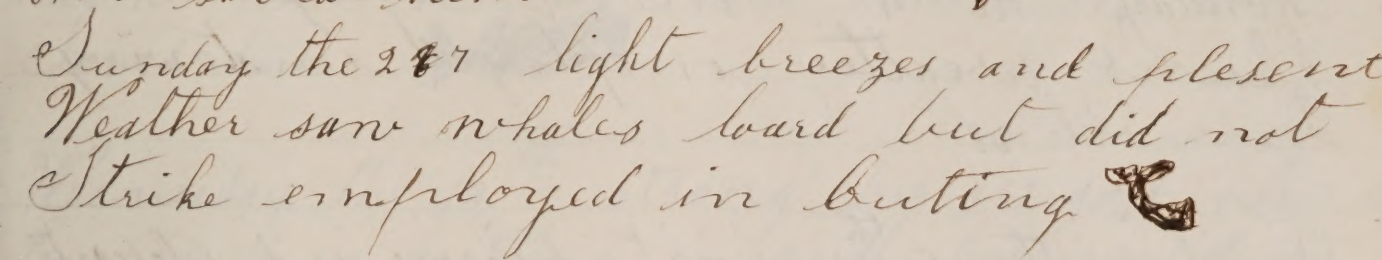 Sunday the 27 light breezes and plesent
Weather saw whales loard but did not
Strike employed in buting